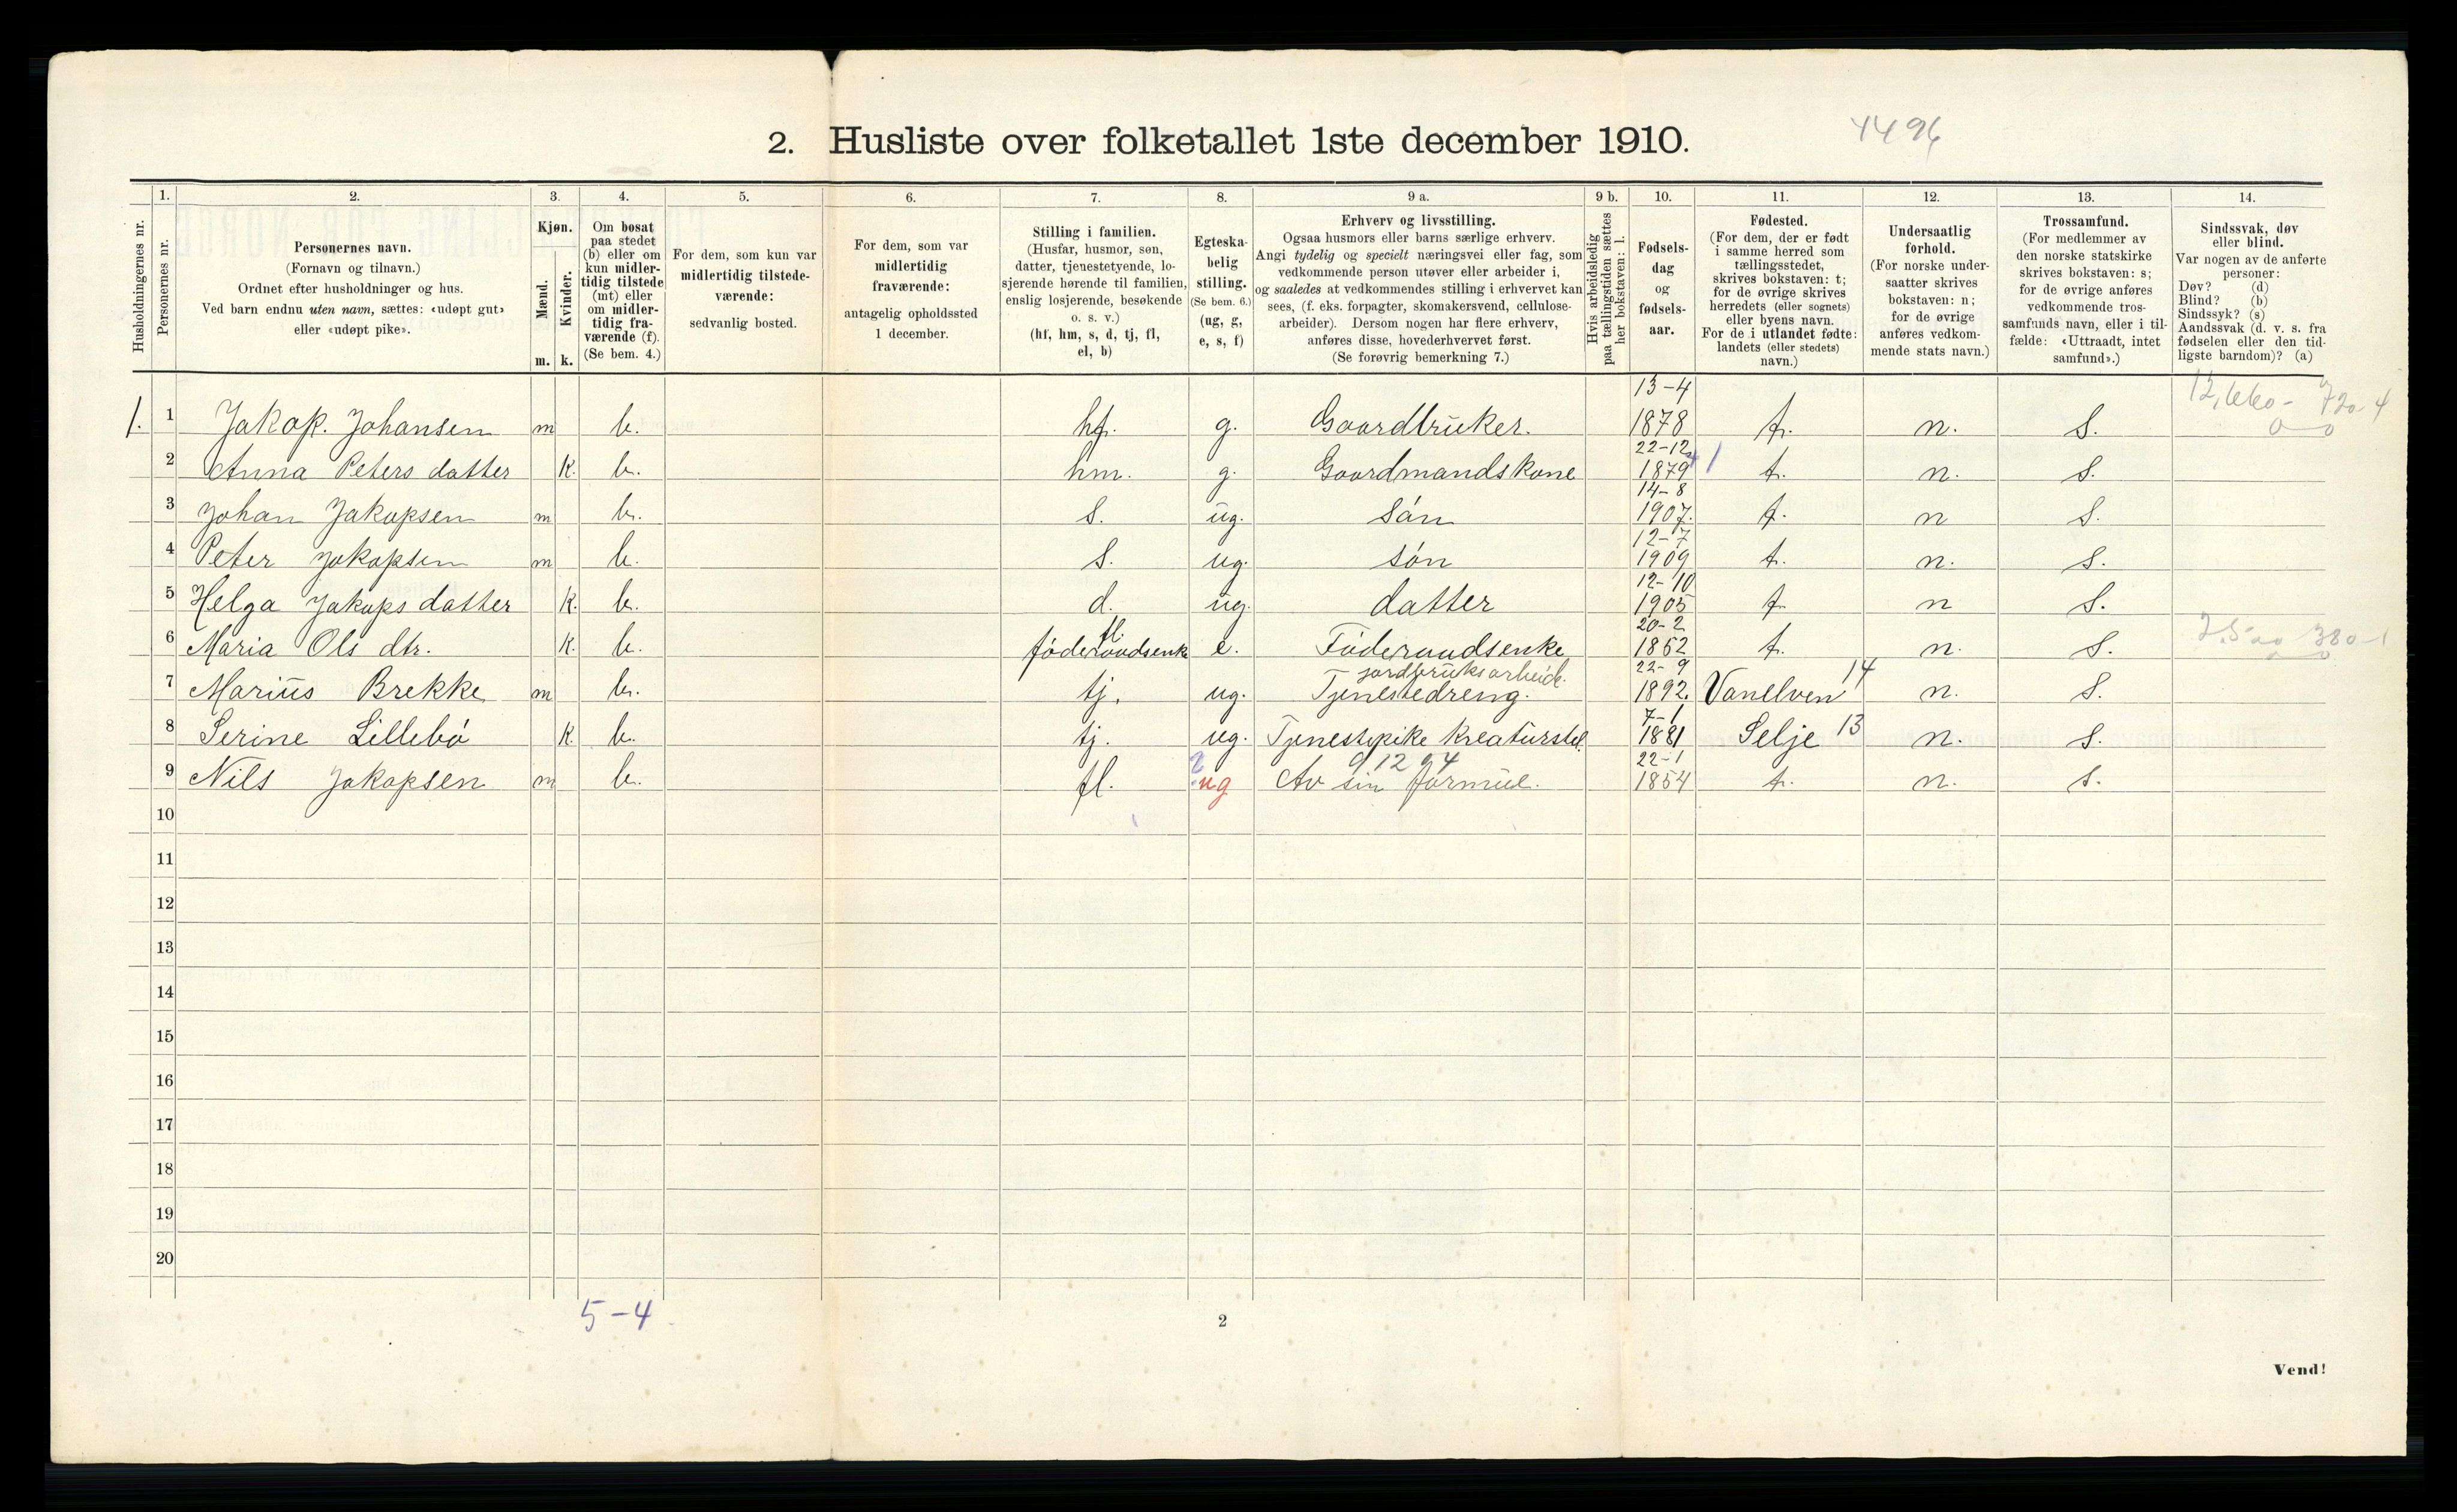 2. Husliste over folketallet 1ste december 1910.
4496
Husholdningernes nr.
1. Personernes nr.
2. Personernes navn.
(Fornavn og tilnavn.)
Ordnet efter husholdninger og hus.
Ved barn endnu uten navn, sættes: «udøpt gut»
eller «udøpt pike».
3. Kjøn.
Mænd. m.
Kvinder. k.
4. Om bosat
paa stedet
(b) eller om
kun midler-
tidig tilstede
(mt) eller
om midler-
tidig fra-
værende (f).
(Se bem. 4.)
5. For dem, som kun var
midlertidig tilstede-
værende:
sedvanlig bosted.
6. For dem, som var
midlertidig
fraværende:
antagelig opholdssted
1 december.
7. Stilling i familien.
(Husfar, husmor, søn,
datter, tjenestetyende, lo-
sjerende hørende til familien,
enslig losjerende, besøkende
o. s. v.)
(hf, hm, s, d, tj, fl,
el, b)
8. Egteska-
belig
stilling.
(Se bem. 6.)
(ug, g,
e, s, f)
9 a. Erhverv og livsstilling.
Ogsaa husmors eller barns særlige erhverv.
Angi tydelig og specielt næringsvei eller fag, som
vedkommende person utøver eller arbeider i,
og saaledes at vedkommendes stilling i erhvervet kan
sees, (f. eks. forpagter, skomakersvend, cellulose-
arbeider). Dersom nogen har flere erhverv,
anføres disse, hovederhvervet først.
(Se forøvrig bemerkning 7.)
9 b. Hvis arbeidsledig
paa tællingstiden sættes
her bokstaven: l.
10. Fødsels-
dag
og
fødsels-
aar.
11. Fødested.
(For dem, der er født
i samme herred som
tællingsstedet,
skrives bokstaven: t;
for de øvrige skrives
herredets (eller sognets)
eller byens navn.
For de i utlandet fødte:
landets (eller stedets)
navn.)
12. Undersaatlig
forhold.
(For norske under-
saatter skrives
bokstaven: n;
for de øvrige
anføres vedkom-
mende stats navn.)
13. Trossamfund.
(For medlemmer av
den norske statskirke
skrives bokstaven: s;
for de øvrige anføres
vedkommende tros-
samfunds navn, eller i til-
fælde: «Uttraadt, intet
samfund».)
14. Sindssvak, døv
eller blind.
Var nogen av de anførte
personer:
Døv? (d)
Blind? (b)
Sindssyk? (s)
Aandssvak (d. v. s. fra
fødselen eller den tid-
ligste barndom)? (a)
1. 1 Jakop. Johansen m b. hf. g. Gaardbruker. 13-4 1878 t. n. S.
2 Anna Petersdatter k. b. hm. g. Gaardmandskone 22-12 1879 t. n. S.
3 Johan Jakopsen m b. s. ug. Són 14-8 1907. t. n S.
4 Peter Jakopsen m b. s. ug. són 12-7 1909 t. n. S.
5 Helga Jakopsdatter k. b. d. ug. datter 12-10 1905 t. n S.
6 Maria Ols dtr. k. b. fl. föderaadsenke e. Föderaadsenke 20-2 1852 t. n. S.
7 Marius Brekke m b. tj. ug. Tjenestedreng. jordbruksarbeide. 22-9 1892. Vanelven 14 n. S.
8 Serine Lillebö k. b. tj. ug. Tjenestepike Kreaturstel. 7-1 1881 Selje 13 n. S.
9 Nils Jakopsen m b. fl. ug Av sin formue. 22-1 1854 t. n. S.
10
11
12
13
14
15
16
17
18
19
20
5-4
2
Vend!